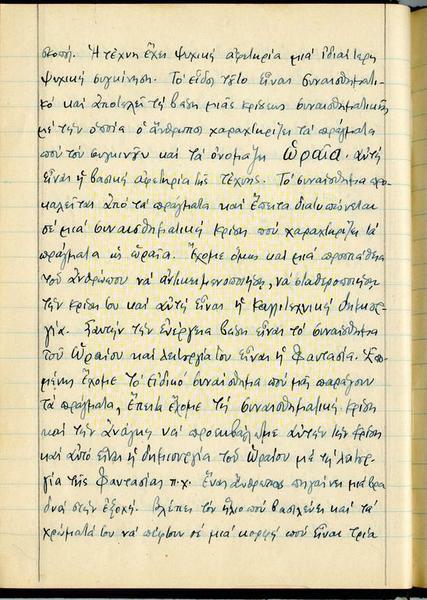 σκοπή. Ἡ τέχνη ἔχει ψυχική ἀφετηρία μιά ἰδιαίτερη
ψυχική συγκίνηση. Τό εἶδος τοῦτο εἶναι συναισθηματι-
κό καί ἀποτελεῖ τή βάση μιᾶς κρίσεως συναισθηματικῆς
μέ τήν ὁποία ὁ ἄνθρωπος χαρακτηρίζει τά πράγματα
πού τόν συγκινοῦν καί τά ὀνομάζει ὡραῖα. αὐτή
εἶναι ἡ βασική ἀφετηρία τῆς τέχνης. Τό συναίσθημα προ-
καλεῖται ἀπό τά πράγματα καί ἔπειτα διατυπώνεται
σέ μιά συναισθηματική κρίση πού χαρακτηρίζει τά
πράγματα ὡς ὡραῖα. Ἔχομε ὅμως καί μιά προσπάθεια
τοῦ ἀνθρώπου νά ἀντικειμενοποιήση, νά σταθεροποιήση
τήν κρίση του καί αὐτή εἶναι ἡ καλλιτεχνική δημιουρ-
γία. Σ' αὐτήν τήν ἐνέργεια βάση εἶναι τό συναίσθημα
τοῦ ὡραίου καί λειτουργία του εἶναι ἡ φαντασία. Ἑπο-
μένως ἔχομε τό εἰδικό συναίσθημα πού μᾶς παράγουν
τά πράγματα, ἔπειτα ἔχομε τή συναισθηματική κρίση
καί τήν ἀνάγκη νά προεκβάλωμε αὐτήν τήν κρίση
καί αὐτό εἶναι ἡ δημιουργία τοῦ ὡραίου μέ τή λειτουρ-
γία τῆς φαντασίας π.χ. Ἕνας ἄνθρωπος πηγαίνει μιά βρα
δυά στήν ἐξοχή. βλέπει τόν ἥλιο πού βασιλεύει καί τά
χρώματά του νά πέφτουν σέ μιά κορφή πού εἶναι τρία